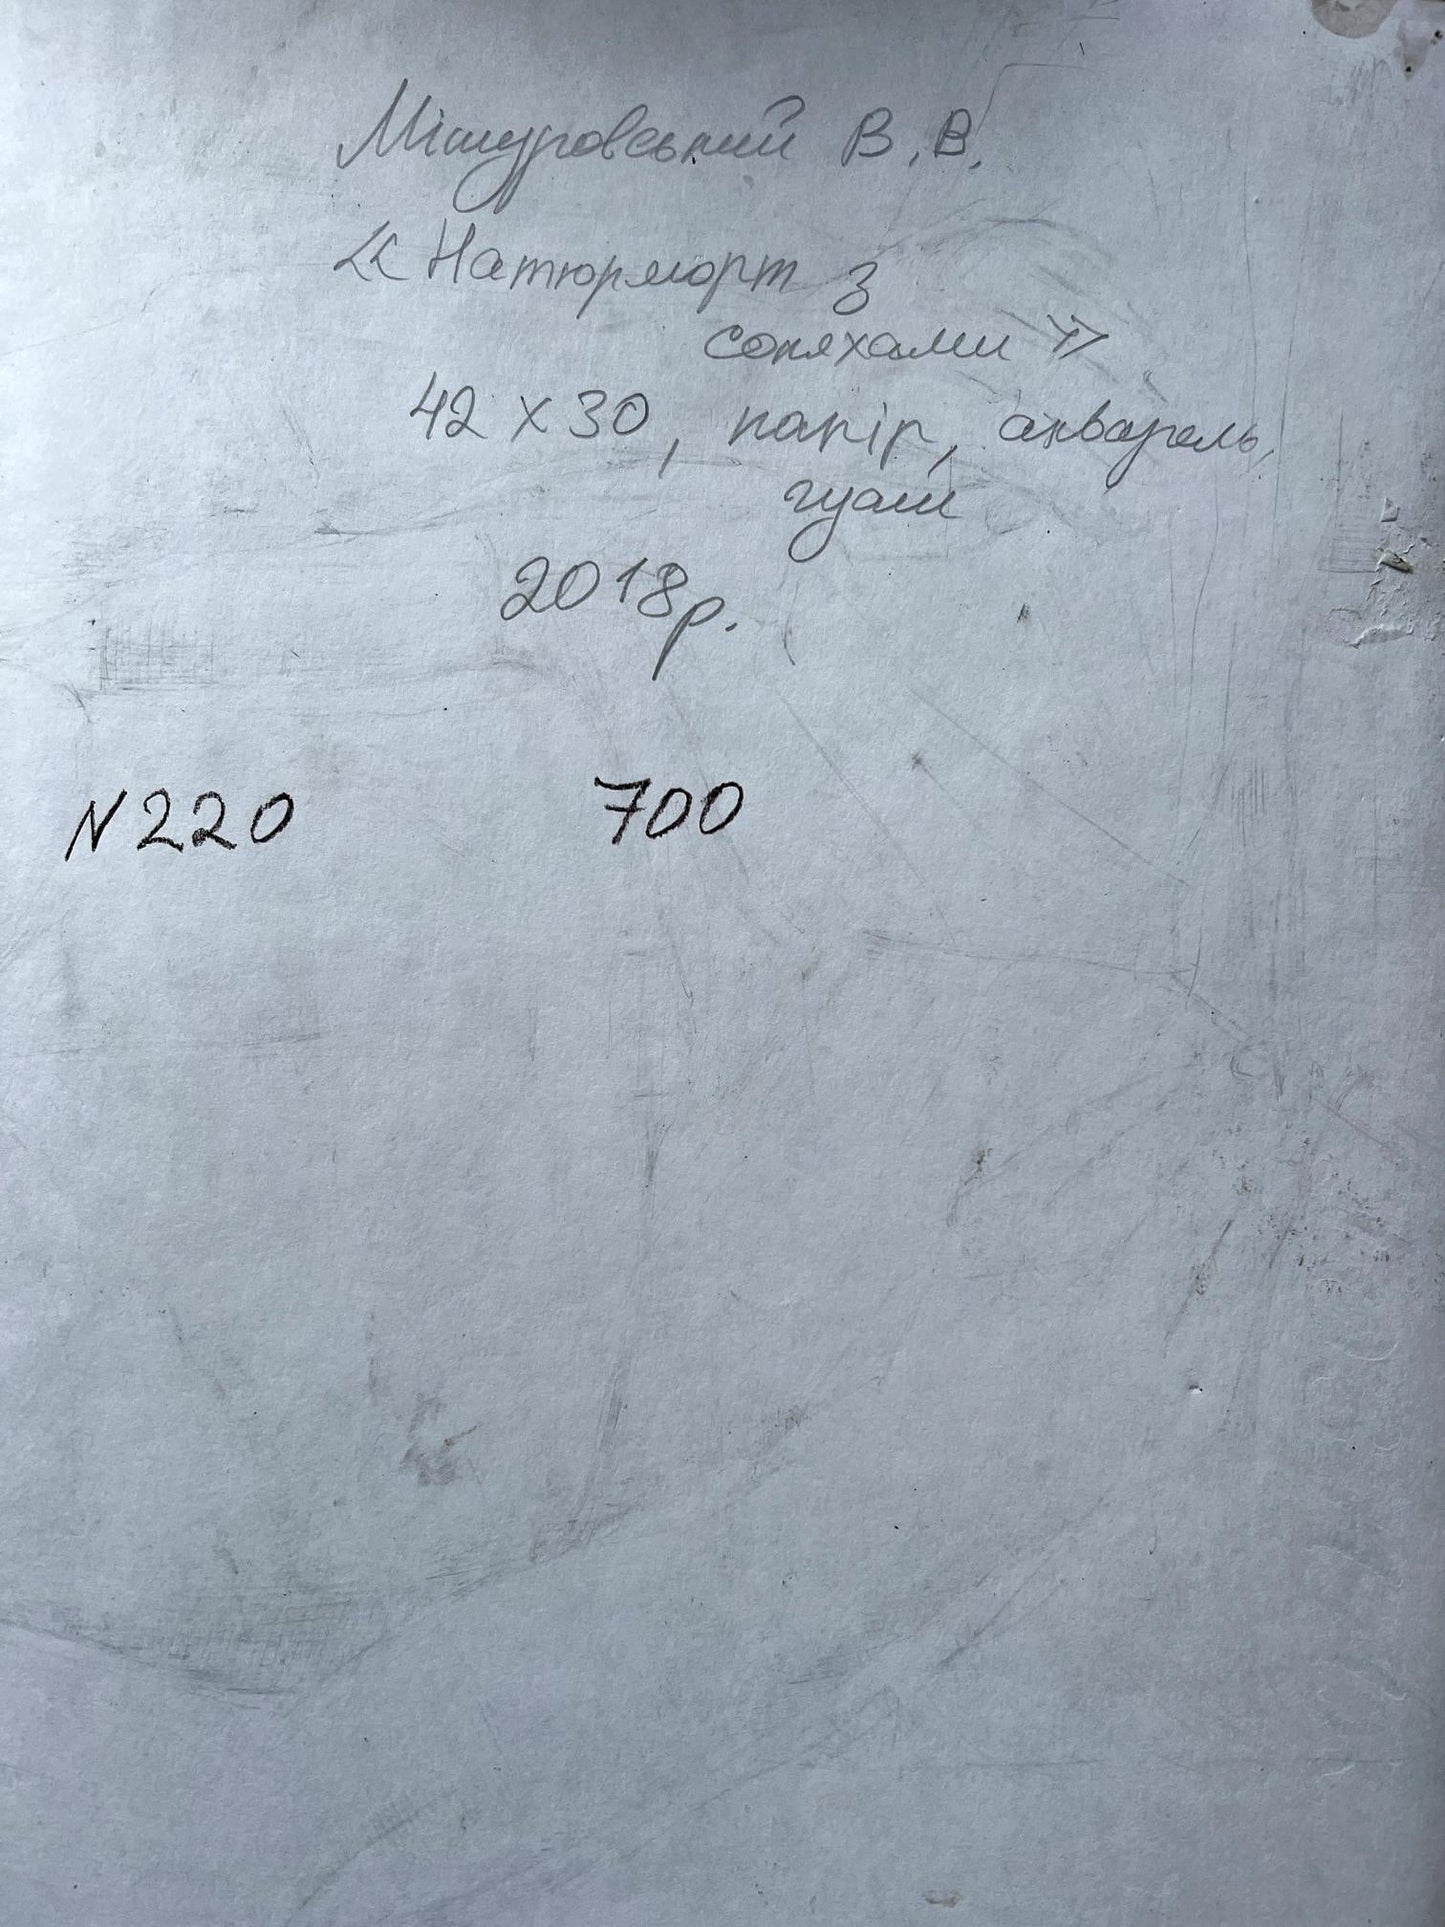 Мішуровський В. В.
«Натюрморт з
соняхами»
42 х 30, папір, акварель,
гуаш
2018р.
N220 700